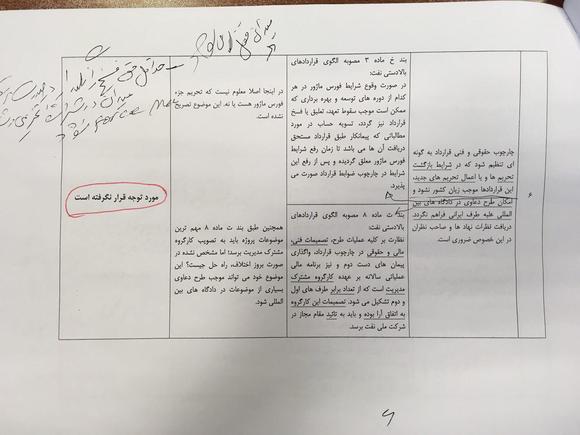 ۶
چارچوب حقوقی و فنی قرارداد به گونه
ای تنظیم شود که در شرایط بازگشت
تحریم ها و یا اعمال تحریم های جدید،
این قراردادها موجب زیان کشور نشود و
امکان طرح دعاوی در دادگاه های بین
المللی علیه طرف ایرانی فراهم نگردد.
دریافت نظرات نهاد ها و صاحب نظران
در این خصوص ضروری است.
بند خ ماده ۳ مصوبه الگوی قراردادهای
بالادستی نفت:
در صورت وقوع شرایط فورس ماژور در هر
کدام از دوره های توسعه و بهره برداری که
ممکن است موجب سقوط تعهد، تعلیق یا فسخ
قرارداد نیز گردد، تسویه حساب در مورد
مطالباتی که پیمانکار طبق قرارداد مستحق
دریافت آن ها می باشد تا زمان رفع شرایط
فورس ماژور معلق گردیده و پس از رفع این
شرایط در چارچوب ضوابط قرارداد صورت می
پذیرد.
در اینجا اصلا معلوم نیست که تحریم جزء
فورس ماژور هست یا نه. این موضوع تصریح
نشده است.
بند ت ماده ۸ مصوبه الگوی قراردادهای
بالادستی نفت:
نظارت بر کلیه عملیات طرح، تصمیمات فنی،
مالی و حقوقی در چارچوب قرارداد، واگذاری
پیمان های دست دوم و نیز برنامه مالی
عملیاتی سالانه بر عهده کارگروه مشترک
مدیریت است که از تعداد برابر طرف های اول
و دوم تشکیل می شود. تصمیمات این کارگروه
به اتفاق آرا بوده و باید به تائید مقام مجاز در
شرکت ملی نفت برسد.
همچنین طبق بند ت ماده ۸ مهم ترین
موضوعات پروژه باید به تصویب کارگروه
مشترک مدیریت برسد؛ اما مشخص نشده در
صورت بروز اختلاف، راه حل چیست؟ این
موضوع خود می تواند موجب طرح دعاوی
بسیاری از موضوعات در دادگاه های بین
المللی شود.
مورد توجه قرار نگرفته است